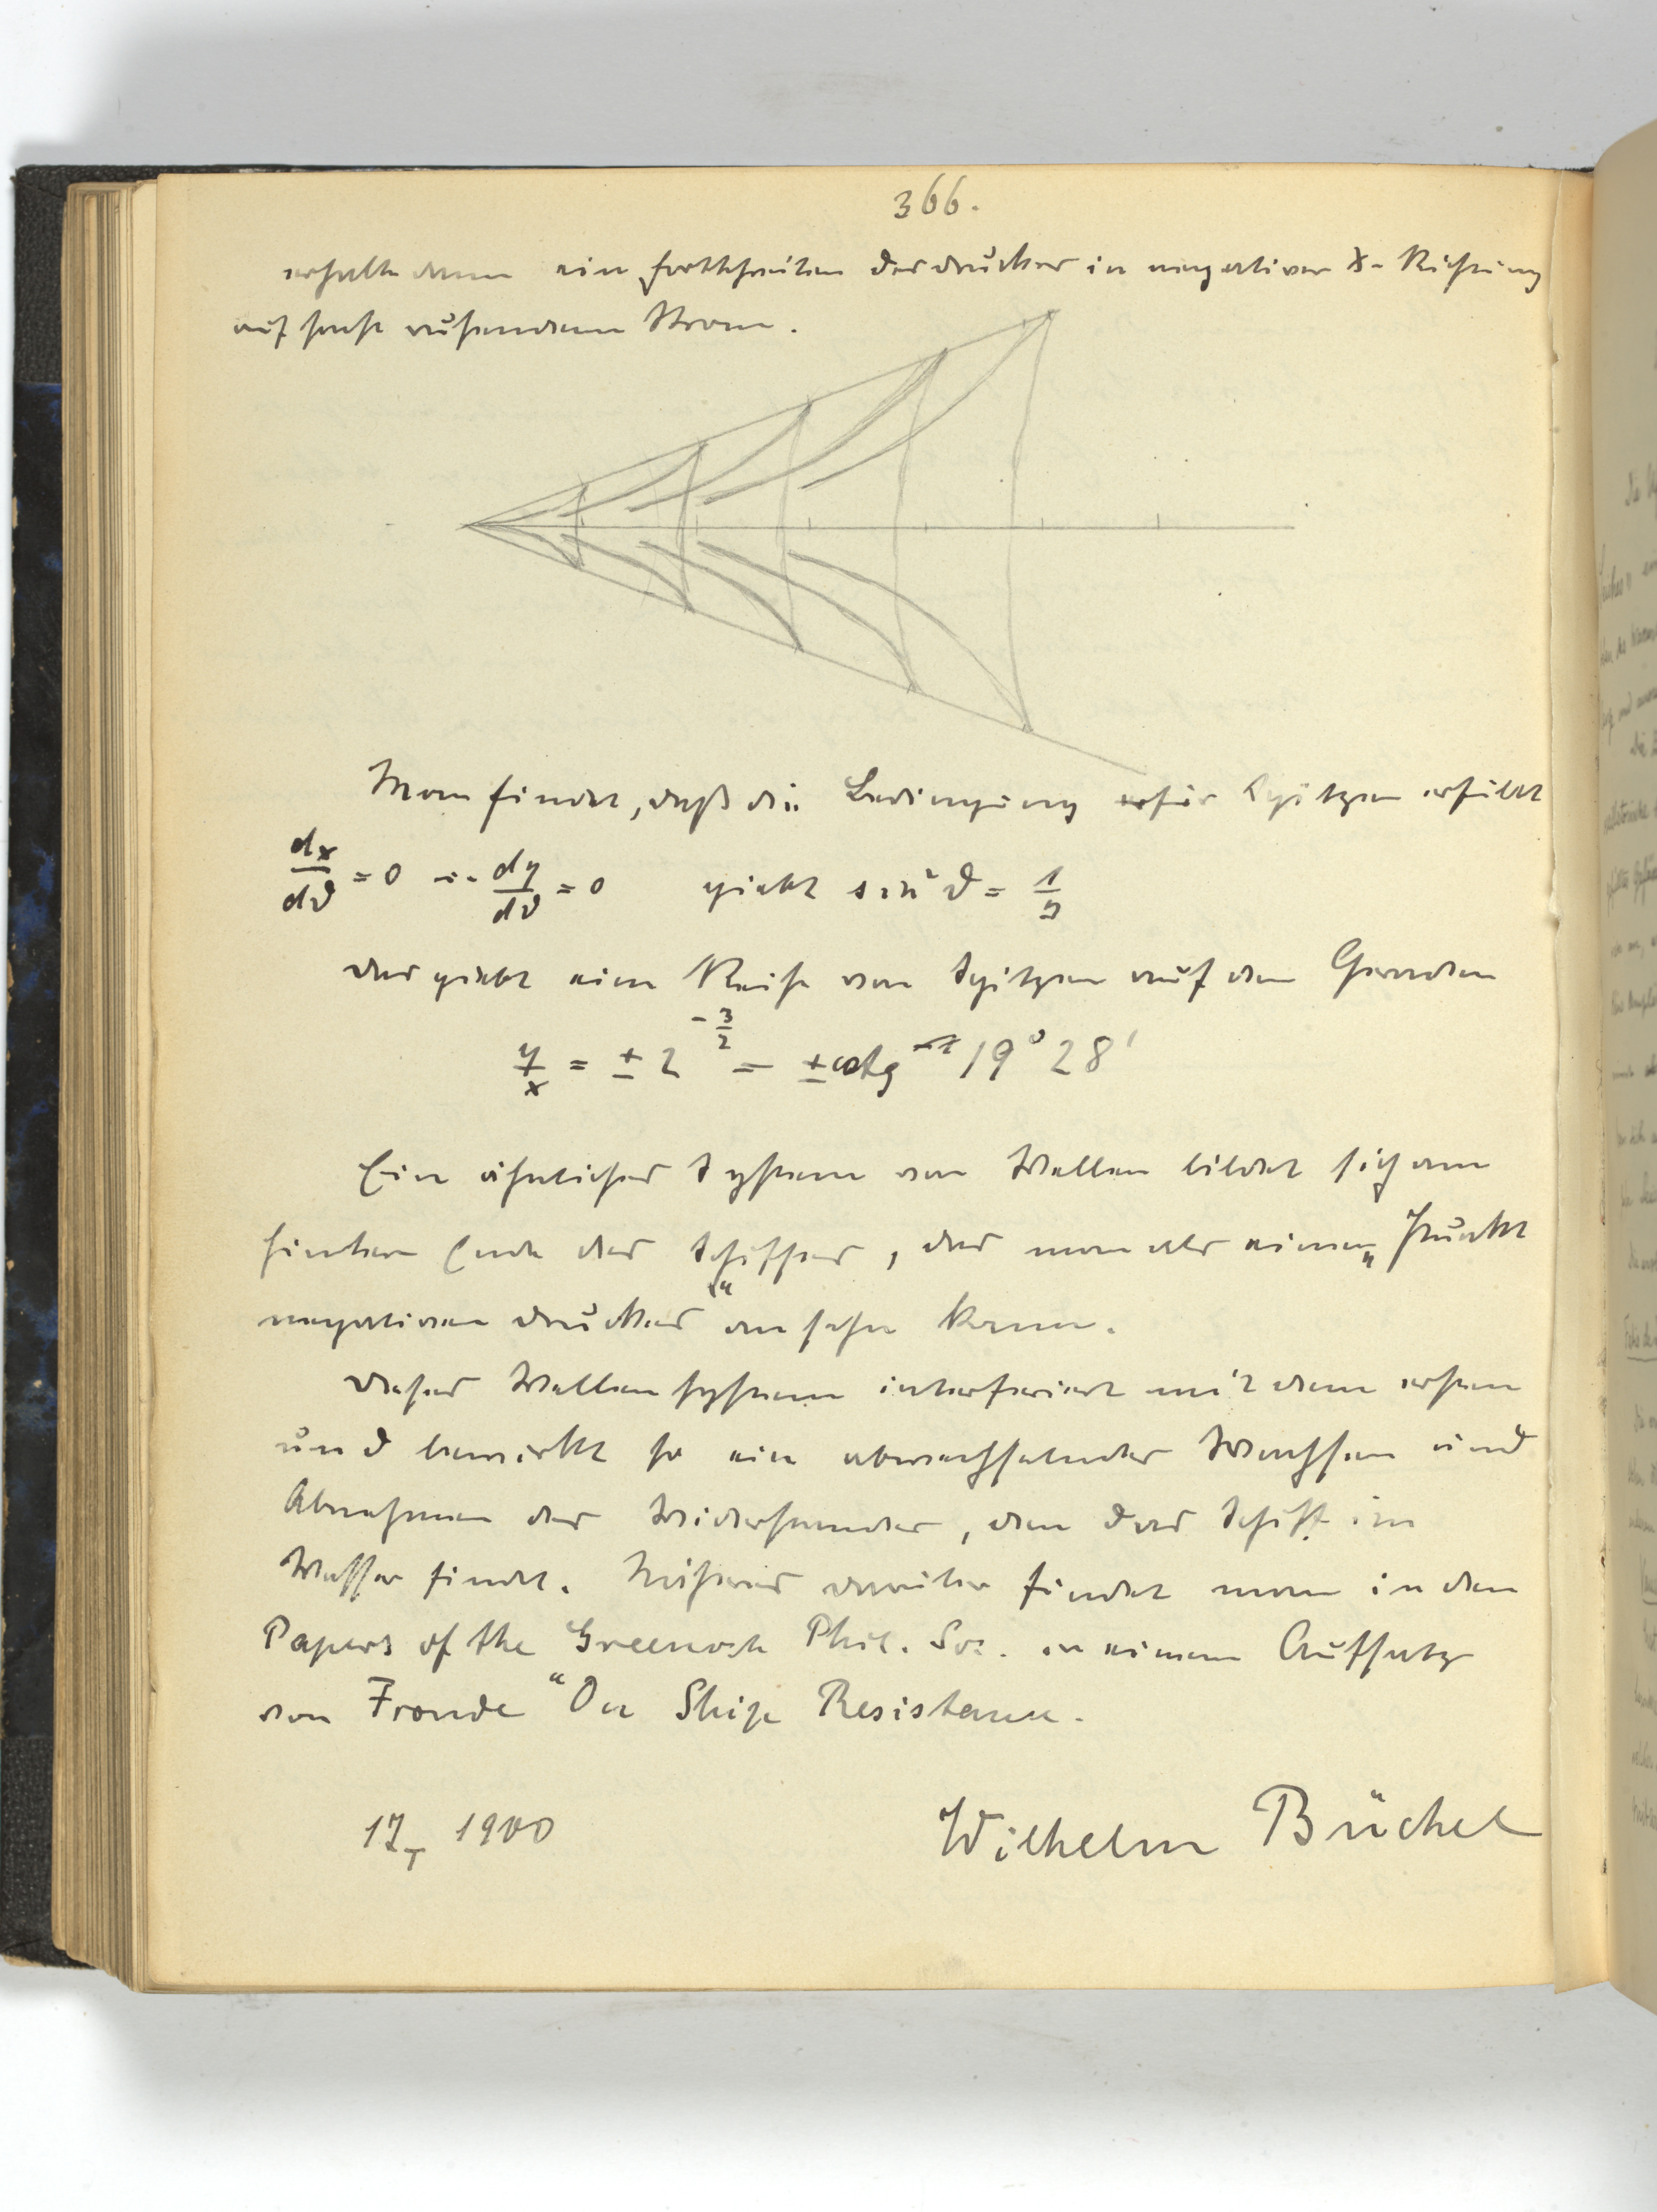 366.
erhalte dann ein fortschreiten des druckes in negativer x-Richtung
auf sonst ruhendem Strom.
Man findet, daß die Bedingung für Spitzen erfüllt
dx/dϑ = 0 dy/dϑ = 0 giebt sin²ϑ = 1/3
das giebt eine Reihe von Spitzen auf den Geraden
y/x = ± 2^(-3/2) = ± cotg 19° 28'
Ein ähnliches System von Wellen bildet sich am
hintern Ende des Schiffes, das man als einen „Punkt
negativen druckes“ ansehn kann.
dieses Wellensystem interferiert mit dem ersten
und bewirkt so ein abwechselndes Wachsen und
Abnehmen des Widerstandes, den das Schiff im
Wasser findet. Näheres darüber findet man in den
Papers of the Greenock Phil. Soc. in einem Aufsatz
von Froude "On Ship Resistance.
17/I 1900
Wilhelm Büchel